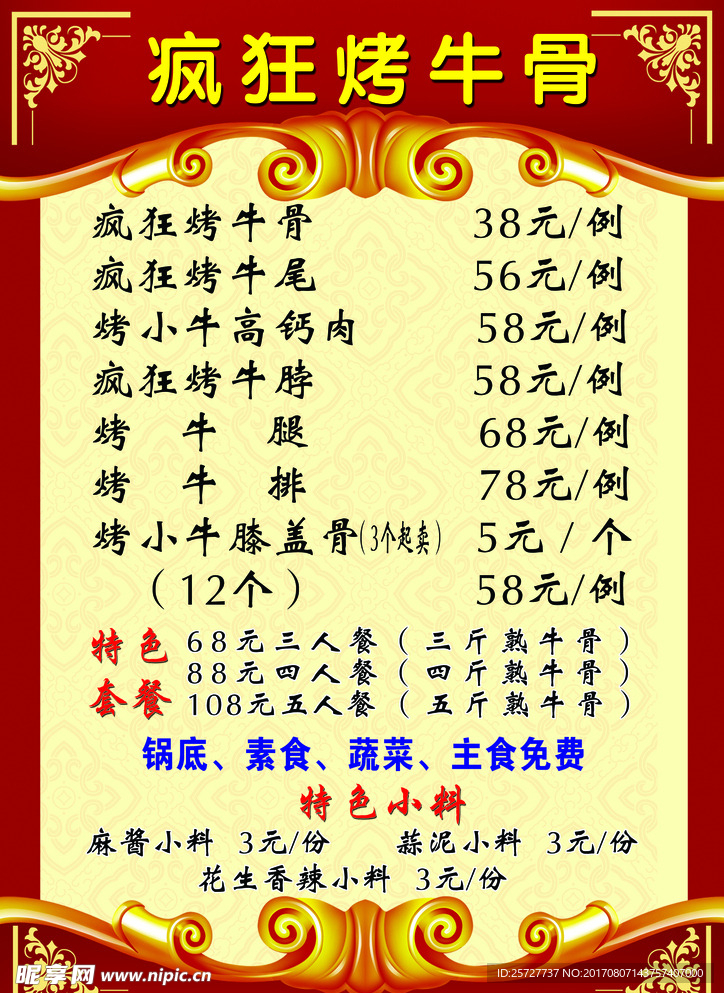 疯狂烤牛骨
疯狂烤牛骨 38元/例
疯狂烤牛尾 56元/例
烤小牛高钙肉 58元/例
疯狂烤牛脖 58元/例
烤牛腿 68元/例
烤牛排 78元/例
烤小牛膝盖骨(3个起卖) 5元/个
（12个） 58元/例
特色套餐
68元三人餐（三斤熟牛骨）
88元四人餐（四斤熟牛骨）
108元五人餐（五斤熟牛骨）
锅底、素食、蔬菜、主食免费
特色小料
麻酱小料 3元/份 蒜泥小料 3元/份
花生香辣小料 3元/份
昵享网 www.nipic.cn
ID:25727737 NO:20170807143757407000